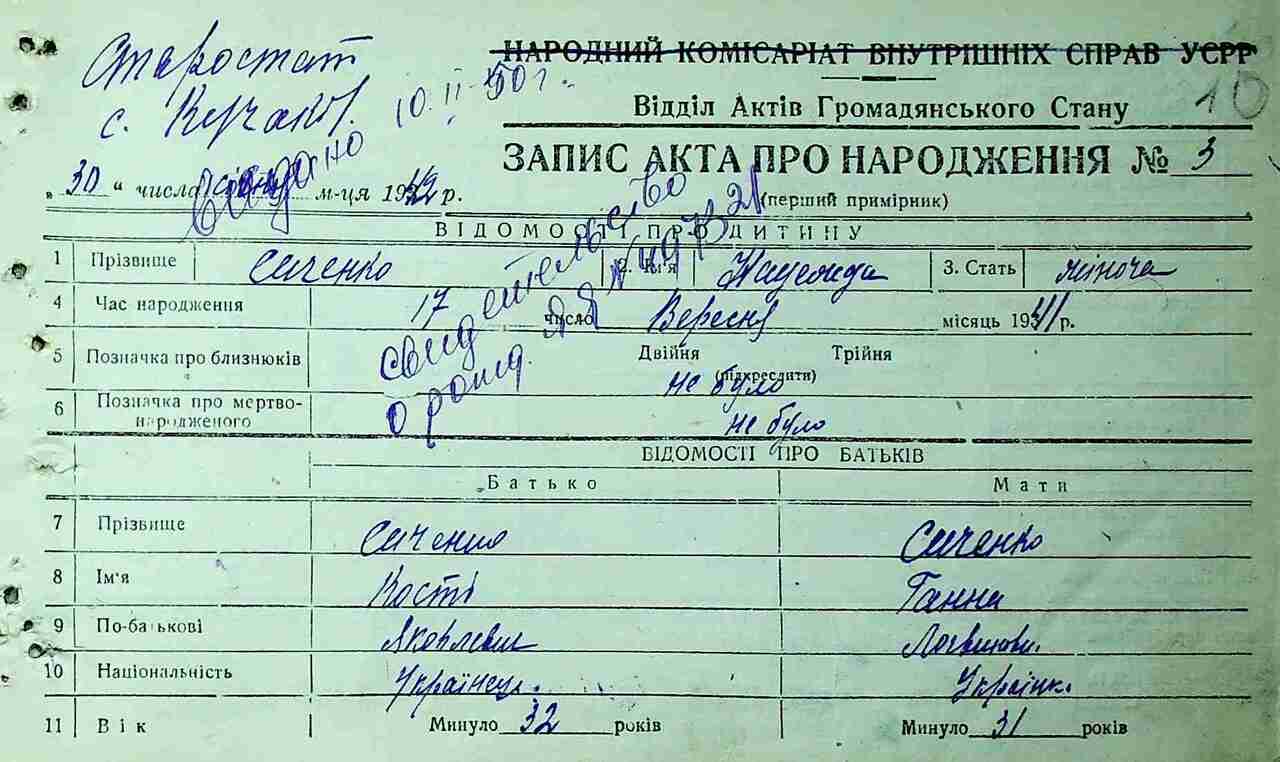 Старостат
с. Кочаків.
НАРОДНИЙ КОМІСАРІАТ ВНУТРІШНІХ СПРАВ УСРР
Відділ Актів Громадянського Стану
10
ЗАПИС АКТА ПРО НАРОДЖЕННЯ № 3
(перший примірник)
„30“ числа січня м-ця 1942 р.
Видано 10.II-50 г.
свидетельство
о рожд.
ВІДОМОСТІ ПРО ДИТИНУ
1 Прізвище Сиченко 2. Ім'я 3. Стать жіноча
4 Час народження 17 число Вересня місяць 1941 р.
5 Позначка про близнюків Двійня Трійня
(підкреслити)
не було
6 Позначка про мертво-
народженого не було
ВІДОМОСТІ ПРО БАТЬКІВ
Батько Мати
7 Прізвище Сиченко Сиченко
8 Ім'я Кость Ганна
9 По-батькові Яковлевич
10 Національність Українець. Українк.
11 Вік Минуло 32 років Минуло 31 років